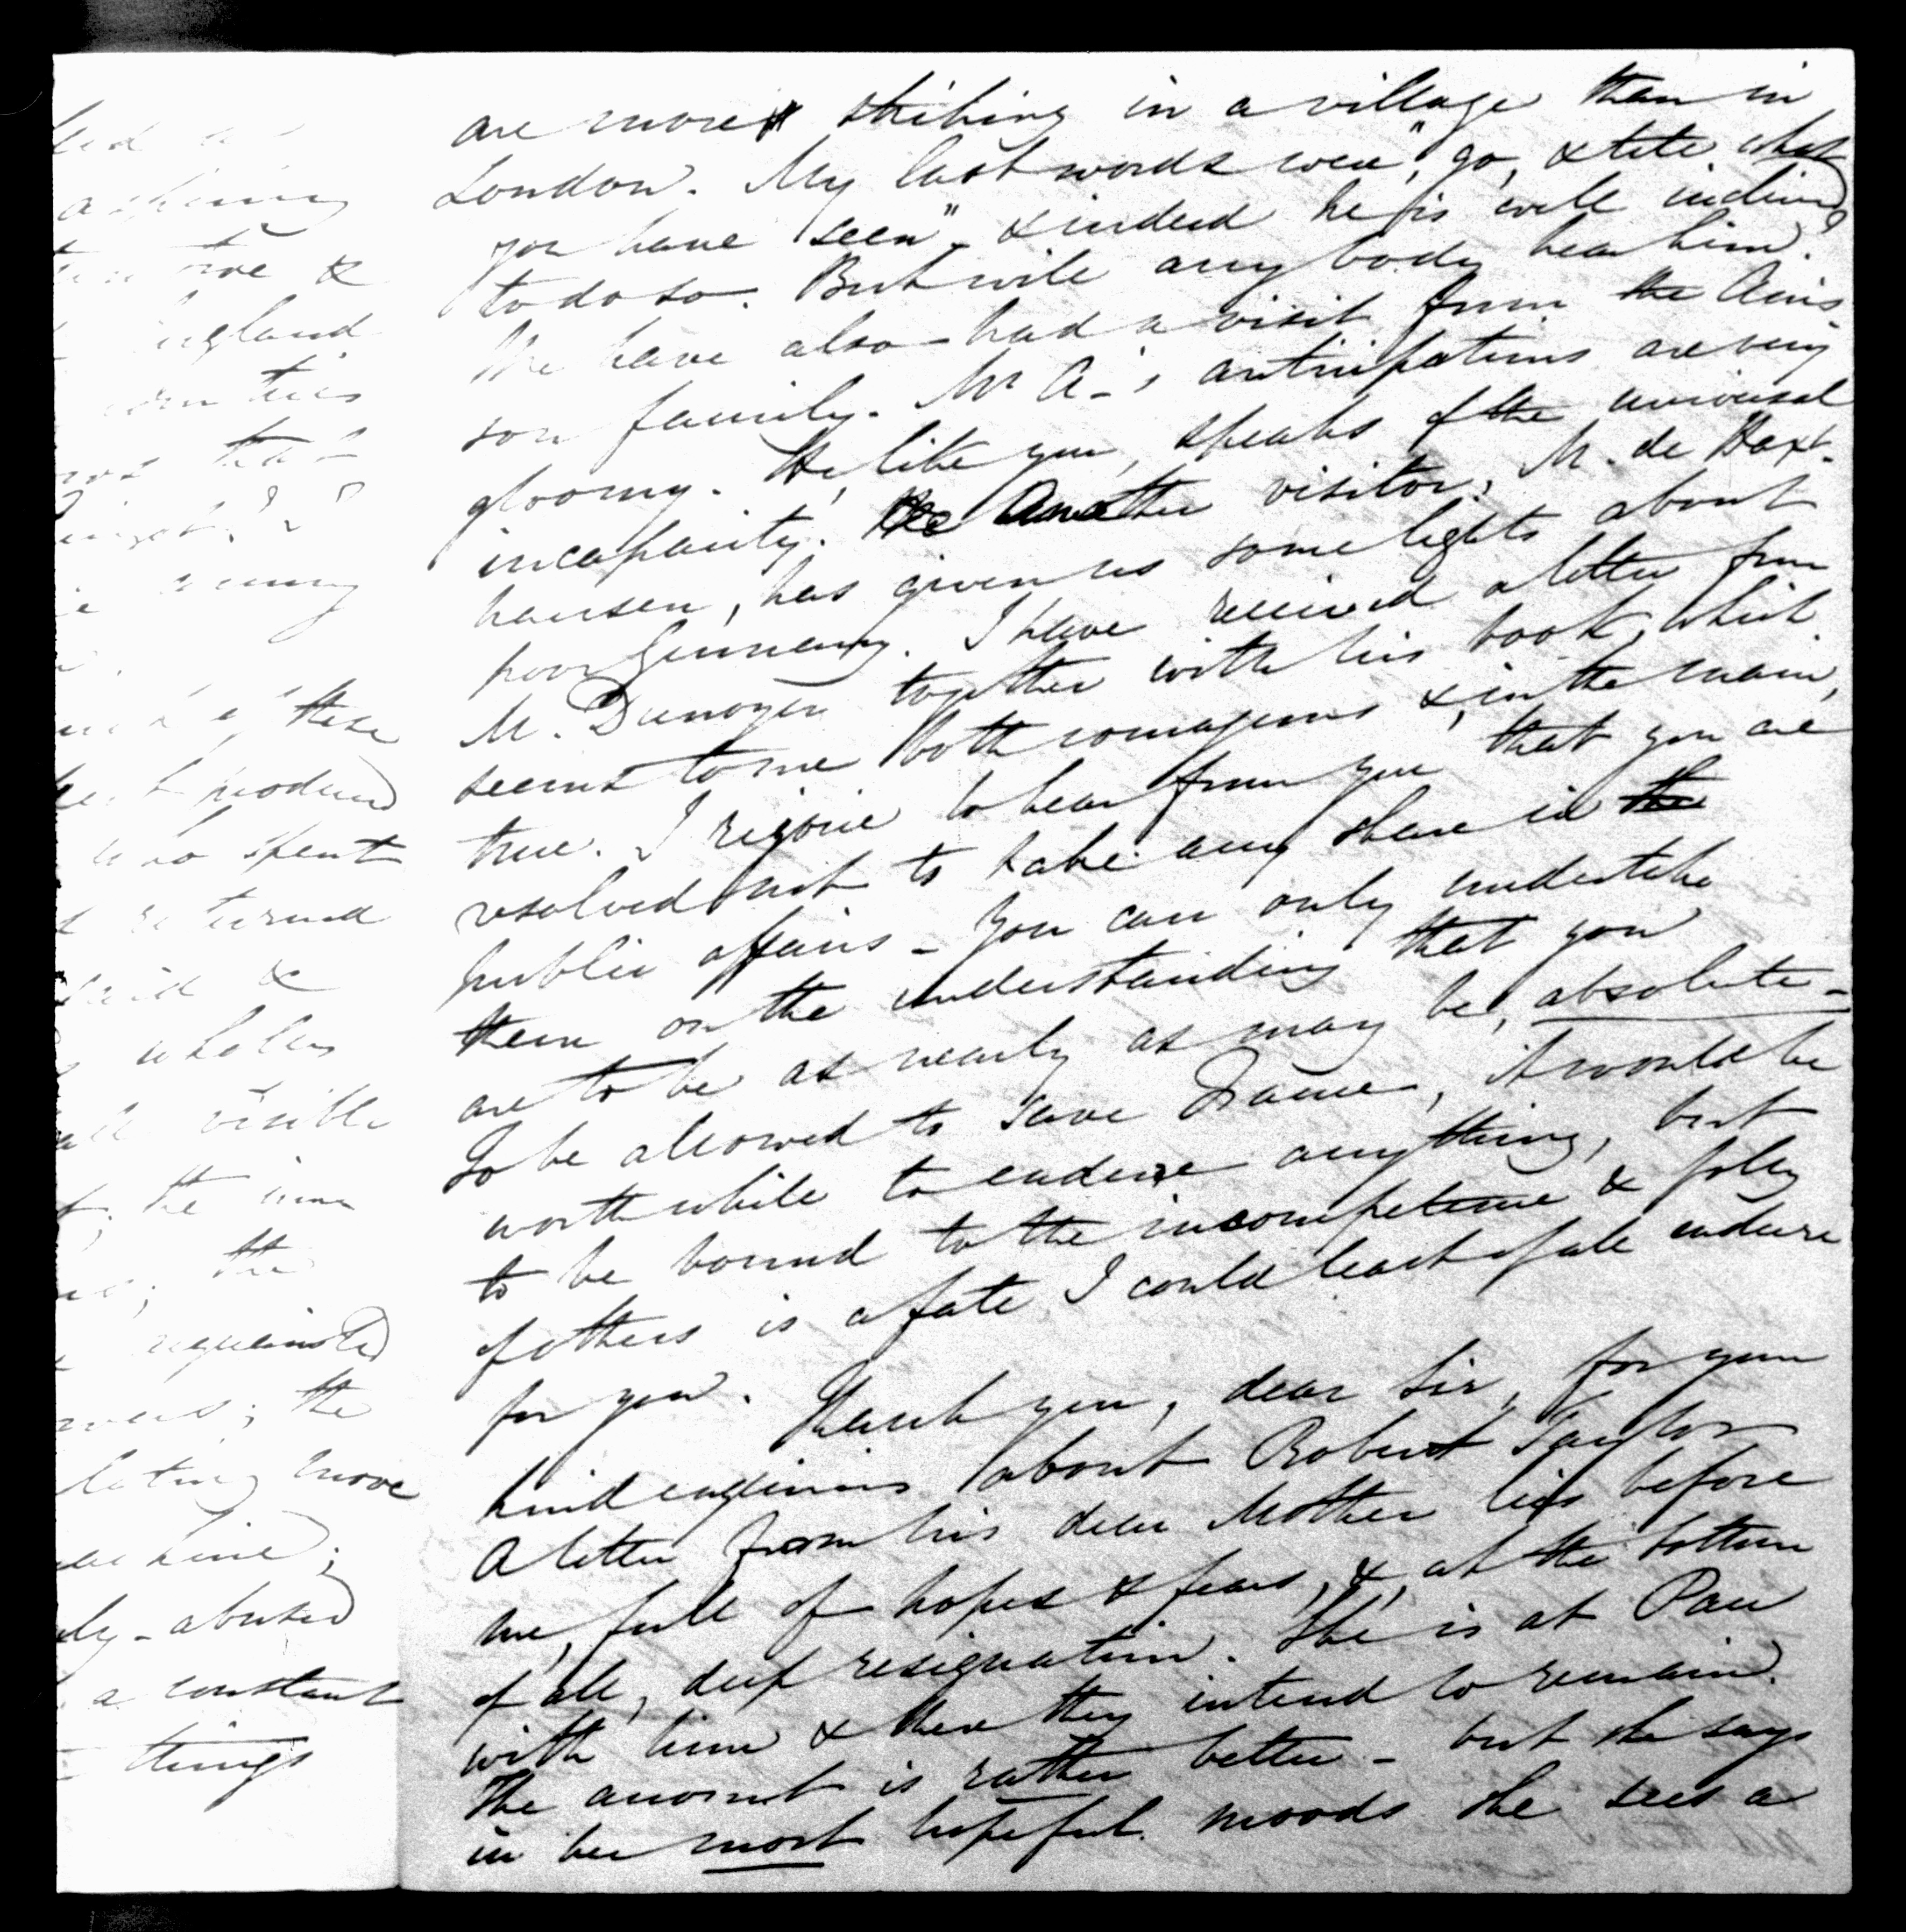 are more striking in a village than in
London. My last words were, "go, & tell what
you have seen" & indeed he is well inclined
to do so. But will any body hear him?
We have also had a visit from the Ains
son family. Mr A-'s anticipations are very
gloomy. He, like you, speaks of the universal
incapacity. Another visitor, M. de Haxt-
hausen, has given us some lights about
poor Germany. I have received a letter from
M. Dunoyer together with his book, which
seems to me both courageous &, in the main,
true. I rejoice to hear from you that you are
resolved not to take any share in the
public affairs - You can only undertake
them on the understanding that you
are to be as nearly as may be, absolute -
To be allowed to save France, it would be
worth while to endure anything, but
to be bound to the incompetence & folly
of others is a fate I could least of all endure
for you. Thank you, dear Sir, for your
kind enquiries about Robert Taylor
A letter from his dear Mother lies before
me, full of hopes & fears, &, at the bottom
of all, deep resignation. She is at Pau
with him & there they intend to remain.
The account is rather better - but she says
in her most hopeful moods she sees a
ashing
& 
England
that
these
produced
who spent
returned
&
wholly
visible
the
the
acquainted
the
move
abused
a constant
things